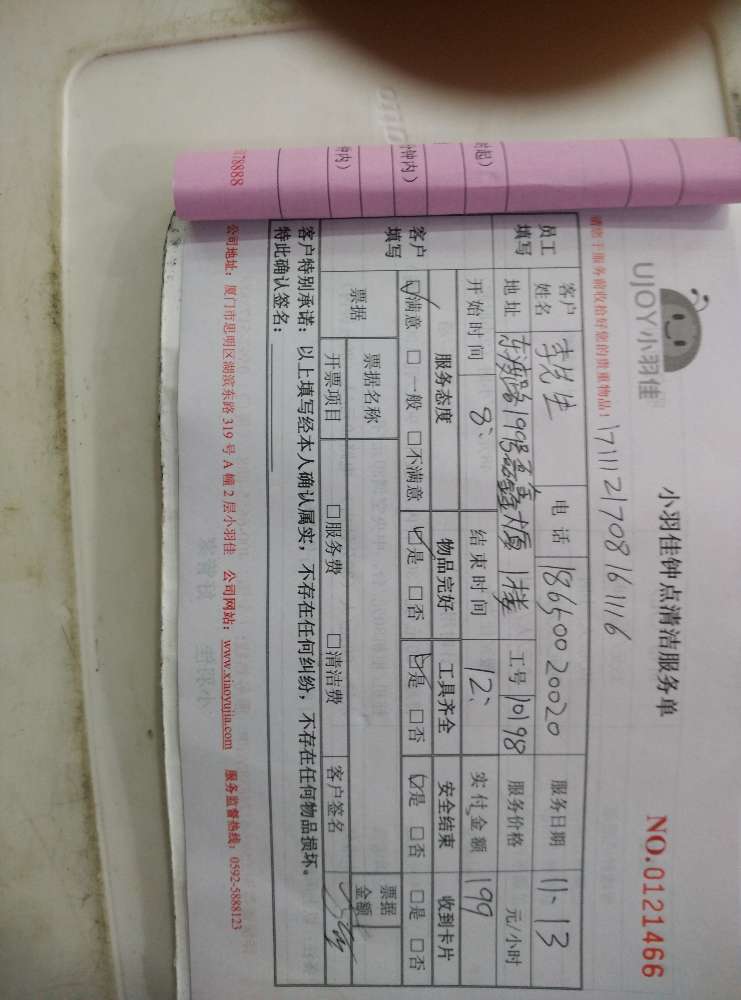 UJOY小羽佳
小羽佳钟点清洁服务单
NO.0121466
1711121708161116
请您于服务前收拾好您的贵重物品!
员工填写 客户姓名 李先生 电话 18650020020 服务日期 11、13
地址 1楼 工号 10198 服务价格 元/小时
开始时间 8、 结束时间 12、 实付金额 199
客户填写 服务态度 物品完好 工具齐全 安全结束 收到卡片
☑满意 □一般 □不满意 ☑是 □否 ☑是 □否 ☑是 □否 □是 □否
票据 票据名称 票据金额
开票项目 □服务费 □清洁费 客户签名
客户特别承诺:以上填写经本人确认属实,不存在任何纠纷,不存在任何物品损坏。
特此确认签名:
公司地址:厦门市思明区湖滨东路 319 号 A 幢 2 层小羽佳 公司网站:www.xiaoyujia.com 服务监督热线:0592-5888123
钟内)
78888